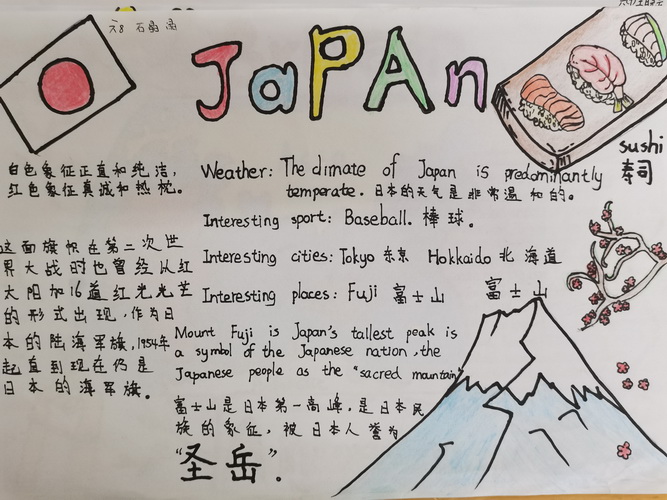 六8
JaPAn
sushi
寿司
白色象征正直和纯洁，
红色象征真诚和热枕。
这面旗帜在第二次世
界大战时也曾经以红
太阳加16道红光光芒
的形式出现，作为日
本的陆海军旗，1954年
起直到现在仍是
日本的海军旗。
Weather: The climate of Japan is predominantly
temperate. 日本的天气是非常温和的。
Interesting sport: Baseball. 棒球。
Interesting cities: Tokyo 东京 Hokkaido 北海道
Interesting places: Fuji 富士山
富士山
Mount Fuji is Japan's tallest peak is
a symbol of the Japanese nation, the
Japanese people as the "sacred mountain"
富士山是日本第一高峰，是日本民
族的象征，被日本人誉为
"圣岳"。